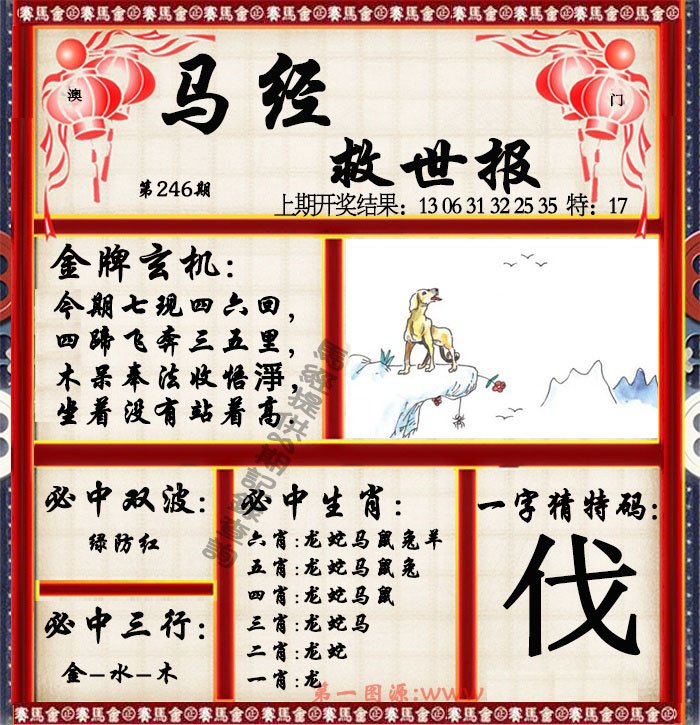 賽馬會 賽馬會 賽馬會 賽馬會 賽馬會 賽馬會 賽馬會 賽馬會
澳
门
马经
救世报
第246期
上期开奖结果：13 06 31 32 25 35 特：17
金牌玄机：
今期七现四六回，
四蹄飞奔三五里，
木呆奉法收悟淨，
坐着没有站着高.
必中双波：
绿防红
必中三行：
金-水-木
必中生肖：
六肖:龙蛇马鼠兔羊
五肖:龙蛇马鼠兔
四肖:龙蛇马鼠
三肖:龙蛇马
二肖:龙蛇
一肖:龙
一字猜特码:
伐
第一图源:www